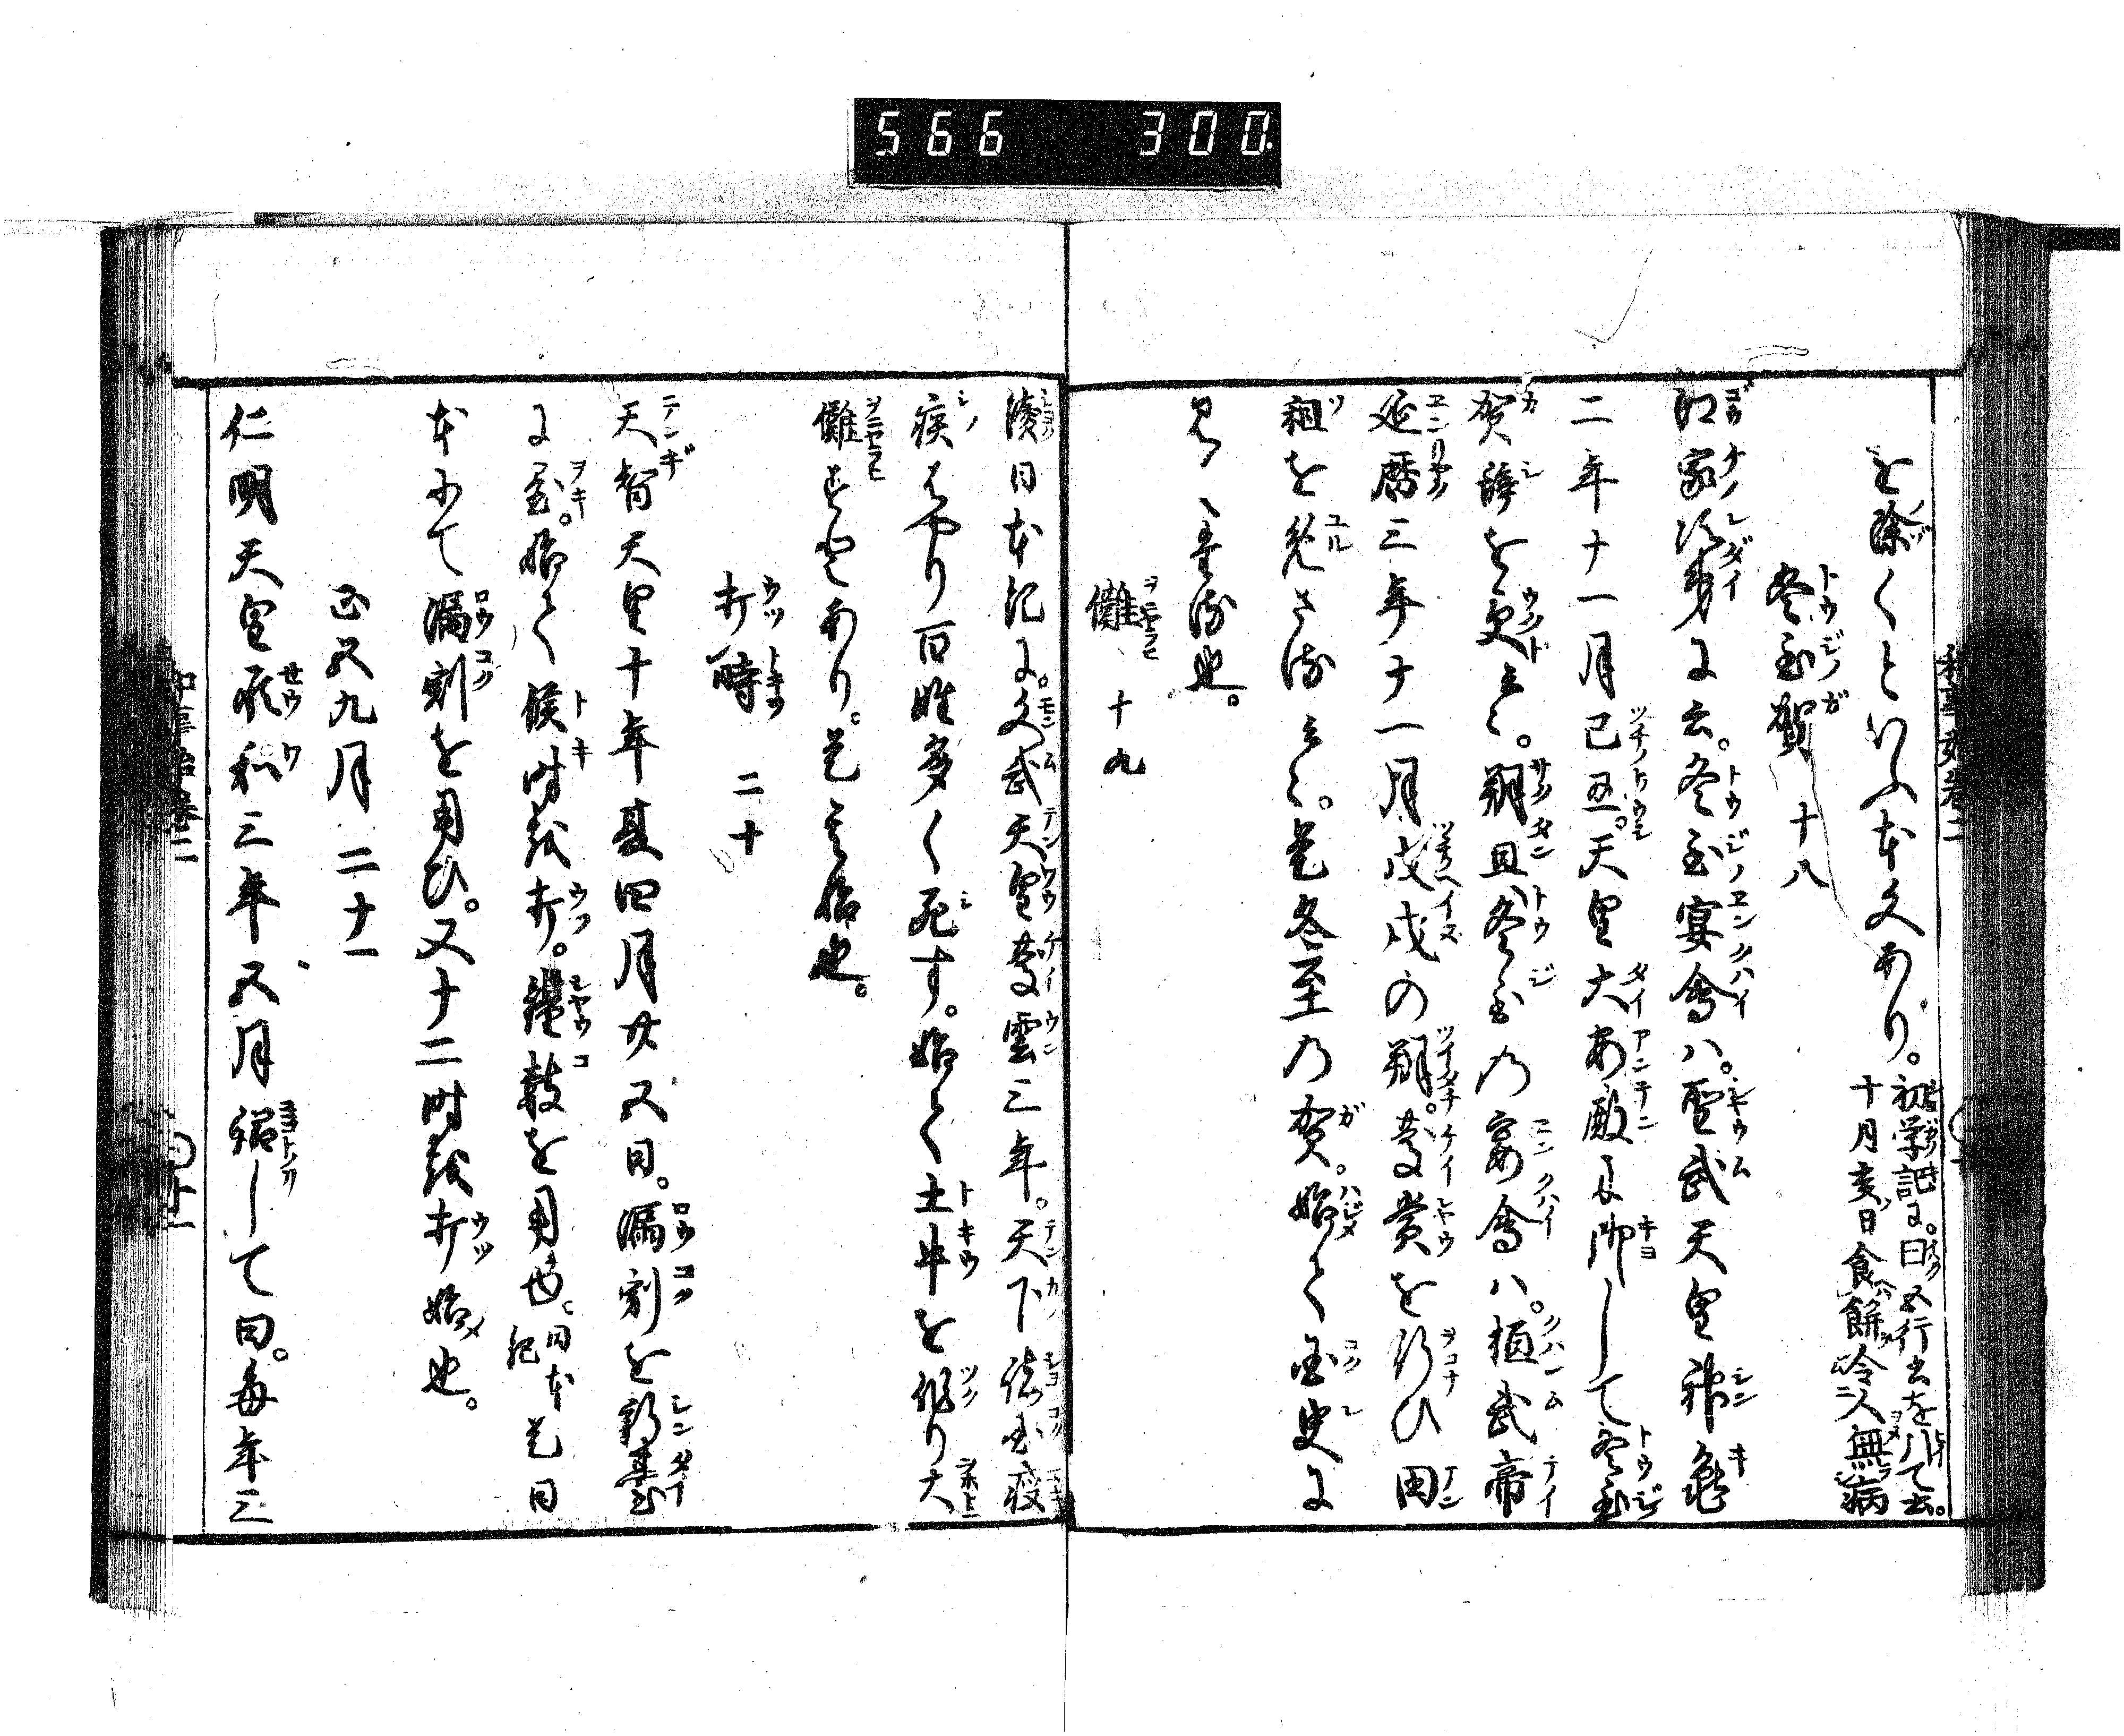 566 300
を除くといふ本文あり。初学記に。曰五行書を引て云。
十月亥日食餅令人無病
冬至賀 十八
江家次第に云。冬至宴會ハ。聖武天皇神亀
二年十一月己丑。天皇大安殿に御して冬至
賀辞を受と云々。朔旦冬至の宴會ハ。桓武帝
延暦三年十一月戊戌の朔。慶賞を行ひ田
租を免さると云々。是冬至の賀。始て国史に
見へ侍る也。
儺 十九
續日本紀に。文武天皇慶雲三年。天下諸国疫
疾はやり百姓多く死す。始て土牛を作り大
儺すとあり。是其始也。
打時 二十
天智天皇十年夏四月廿五日。漏刻を新臺
に置。始て候時を打。鐘鼓を用也。日本紀 是日
本にて漏刻を用ひ。又十二時を打始也。
正五九月 二十一
仁明天皇承和三年五月 詔して曰。毎年三